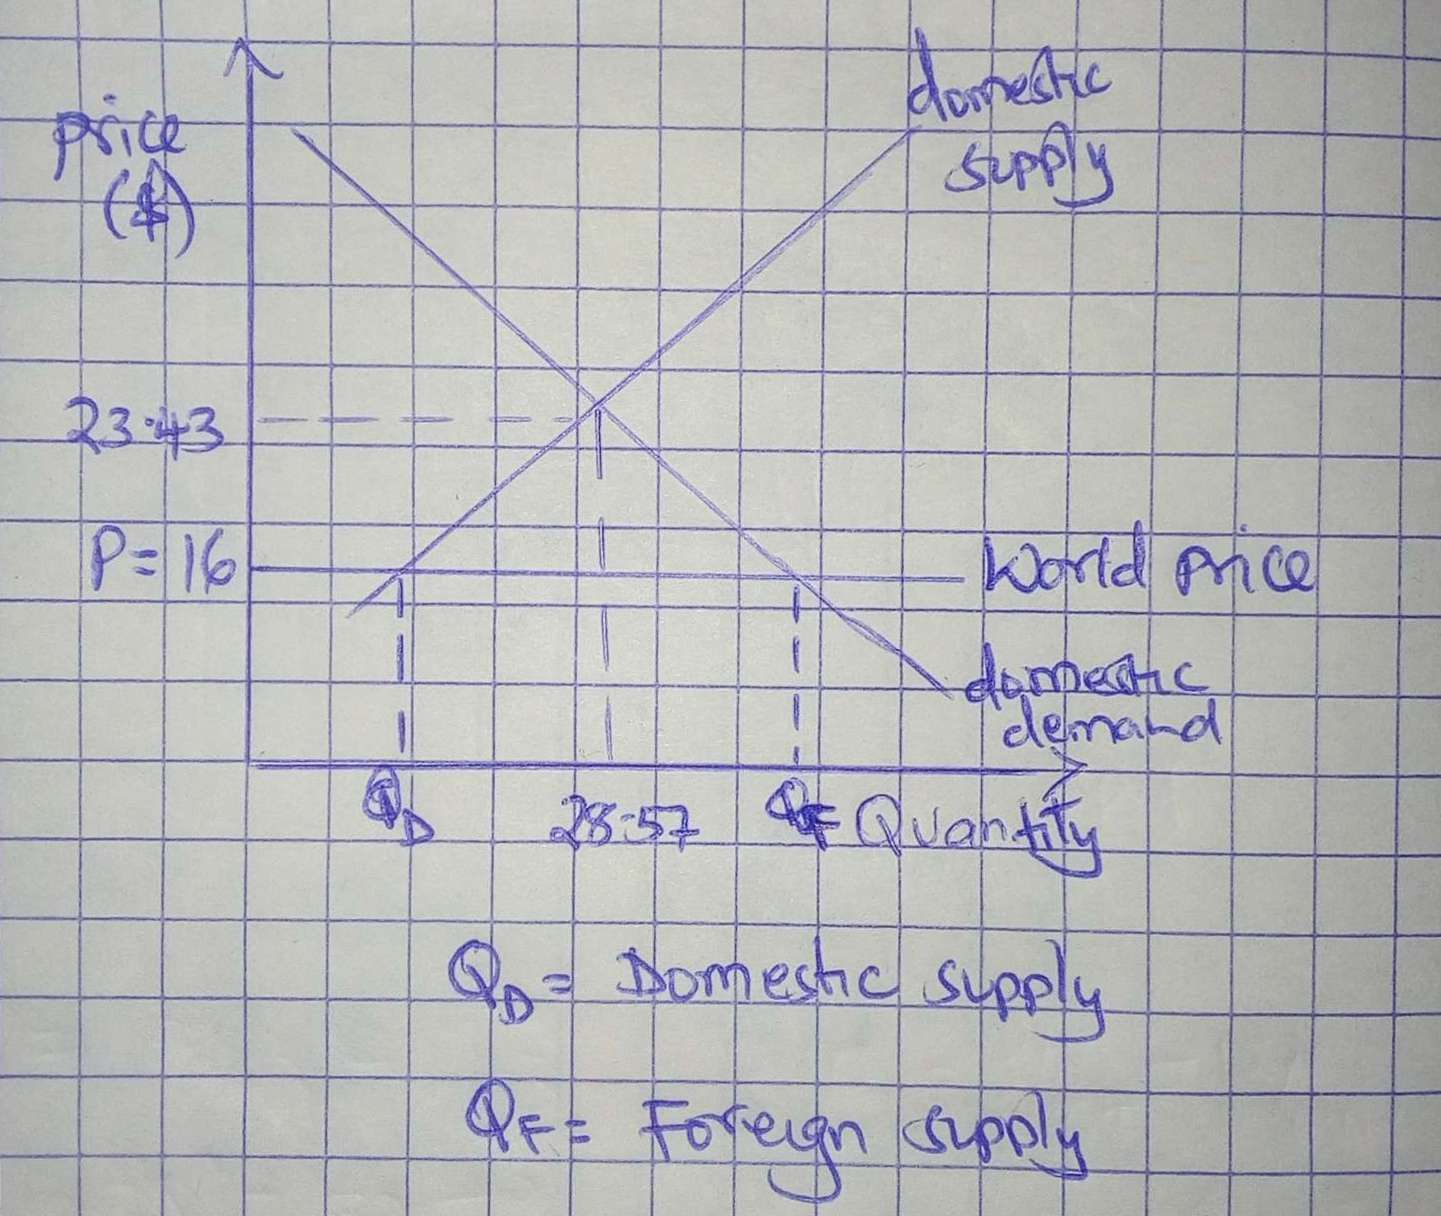 domestic
supply
price
($)
23.43
P = 16
World price
domestic
demand
QD
28.57
QF
Quantity
QD = Domestic supply
QF = Foreign supply